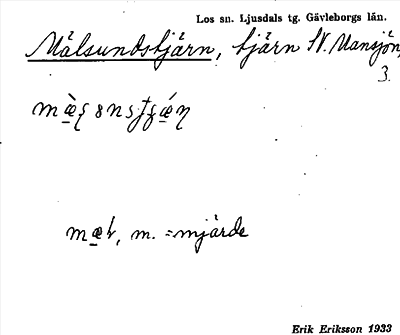 Los sn. Ljusdals tg. Gävleborgs län.
Mälsundstjärn, tjärn SV. Mansjön,
3.
m. = mjärde
Erik Eriksson 1933